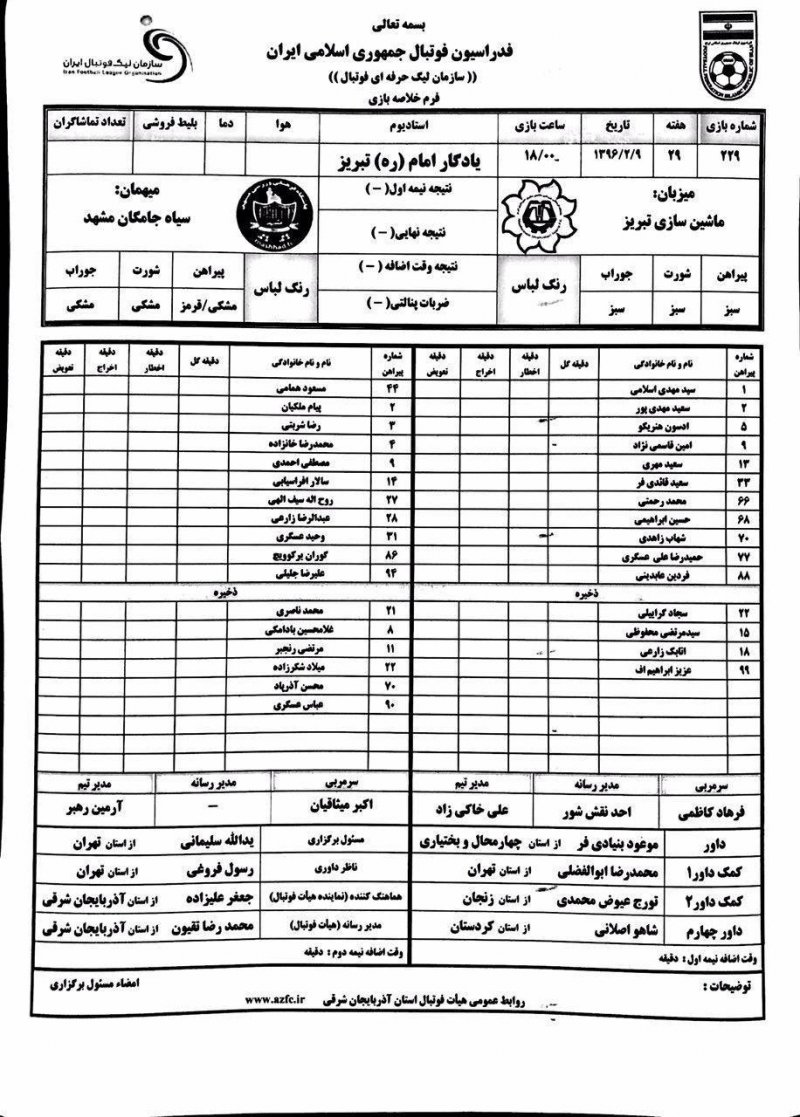 بسمه تعالی
فدراسیون فوتبال جمهوری اسلامی ایران
(( سازمان لیگ حرفه ای فوتبال ))
فرم خلاصه بازی
سازمان لیگ فوتبال ایران
Iran Football League Organization
شماره بازی هفته تاریخ ساعت بازی استادیوم هوا دما بلیط فروشی تعداد تماشاگران
۲۲۹ ۲۹ ۱۳۹۶/۲/۹ ۱۸/۰۰ یادگار امام (ره) تبریز
میزبان: نتیجه نیمه اول( – ) میهمان:
ماشین سازی تبریز نتیجه نهایی( – ) سیاه جامگان مشهد
پیراهن شورت جوراب رنگ لباس نتیجه وقت اضافه ( – ) رنگ لباس پیراهن شورت جوراب
سبز سبز سبز ضربات پنالتی( – ) مشکی/قرمز مشکی مشکی
شماره پیراهن نام و نام خانوادگی دقیقه گل دقیقه اخطار دقیقه اخراج دقیقه تعویض شماره پیراهن نام و نام خانوادگی دقیقه گل دقیقه اخطار دقیقه اخراج دقیقه تعویض
۱ سید مهدی اسلامی ۴۴ مسعود همامی
۲ سعید مهدی پور ۲ پیام ملکیان
۵ ادسون هنریکو ۳ رضا شربتی
۹ امین قاسمی نژاد ۴ محمدرضا خانزاده
۱۳ سعید مهری ۹ مصطفی احمدی
۳۳ سعید قائدی فر ۱۴ سالار افراسیابی
۶۶ محمد رحمتی ۲۷ روح اله سیف الهی
۶۸ حسین ابراهیمی ۲۸ عبدالرضا زارعی
۷۰ شهاب زاهدی ۳۱ وحید عسگری
۷۷ حمیدرضا علی عسگری ۸۶ گوران یرکوویچ
۸۸ فردین عابدینی ۹۴ علیرضا جلیلی
ذخیره ذخیره
۲۲ سجاد کرابیلی ۲۱ محمد ناصری
۱۵ سیدمرتضی محفوظی ۸ غلامحسین بادامکی
۱۸ اتابک زارعی ۱۱ مرتضی رنجبر
۹۹ عزیز ابراهیم اف ۲۲ میلاد شکرزاده
۷۰ محسن آذرپاد
۹۰ عباس عسگری
سرمربی مدیر رسانه مدیر تیم سرمربی مدیر رسانه مدیر تیم
فرهاد کاظمی احد نقش شور علی خاکی زاد اکبر میثاقیان – آرمین رهبر
داور موعود بنیادی فر از استان چهارمحال و بختیاری مسئول برگزاری یدالله سلیمانی از استان تهران
کمک داور۱ محمدرضا ابوالفضلی از استان تهران ناظر داوری رسول فروغی از استان تهران
کمک داور۲ تورج عیوض محمدی از استان زنجان هماهنگ کننده (نماینده هیأت فوتبال) جعفر علیزاده از استان آذربایجان شرقی
داور چهارم شاهو اصلانی از استان کردستان مدیر رسانه (هیأت فوتبال) محمد رضا نقیون از استان آذربایجان شرقی
وقت اضافه نیمه اول: دقیقه وقت اضافه نیمه دوم: دقیقه
توضیحات : امضاء مسئول برگزاری
روابط عمومی هیأت فوتبال استان آذربایجان شرقی www.azfc.ir